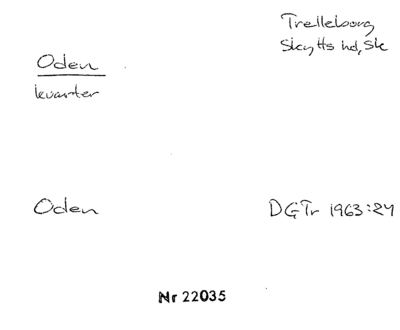 Trelleborg
Skytts hd, Sk
Oden
kvarter
Oden
DGTr 1963:24
Nr 22035